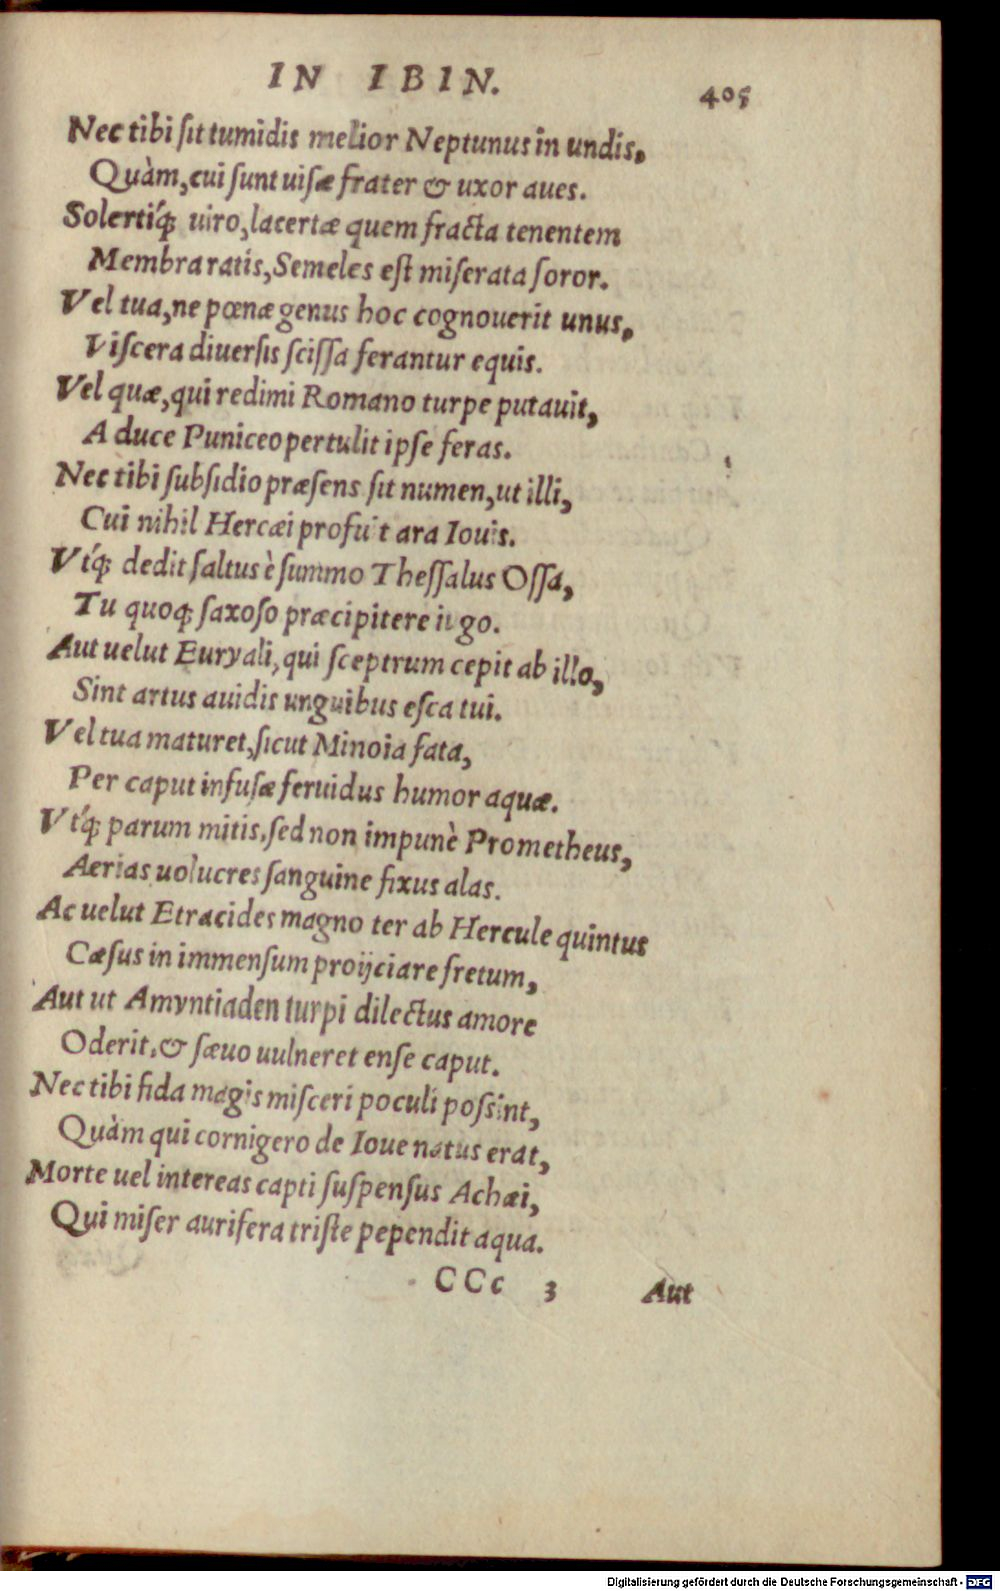 IN IBIN. 405
Nec tibi ſit tumidis melior Neptunus in undis,
Quàm, cui ſunt uiſæ frater & uxor aues.
Solertíq́; uiro, lacertæ quem fracta tenentem
Membra ratis, Semeles eſt miſerata ſoror.
Vel tua, ne pœnæ genus hoc cognouerit unus,
Viſcera diuerſis ſciſſa ferantur equis.
Vel quæ, qui redimi Romano turpe putauit,
A duce Puniceo pertulit ipſe feras.
Nec tibi ſubſidio præſens ſit numen, ut illi,
Cui nihil Hercæi profuit ara Iouis.
Vtq́; dedit ſaltus è ſummo Theſſalus Oſſa,
Tu quoq; ſaxoſo præcipitere iugo.
Aut uelut Euryali, qui ſceptrum cepit ab illo,
Sint artus auidis unguibus eſca tui.
Vel tua maturet, ſicut Minoia fata,
Per caput infuſæ feruidus humor aquæ.
Vtq́; parum mitis, ſed non impunè Prometheus,
Aerias uolucres ſanguine fixus alas.
Ac uelut Etracides magno ter ab Hercule quintus
Cæſus in immenſum proijciare fretum,
Aut ut Amyntiaden turpi dilectus amore
Oderit, & ſæuo uulneret enſe caput.
Nec tibi fida magis miſceri poculi poſsint,
Quàm qui cornigero de Ioue natus erat,
Morte uel intereas capti ſuſpenſus Achæi,
Qui miſer aurifera triſte pependit aqua.
CCc 3 Aut
Digitalisierung gefördert durch die Deutsche Forschungsgemeinschaft - DFG